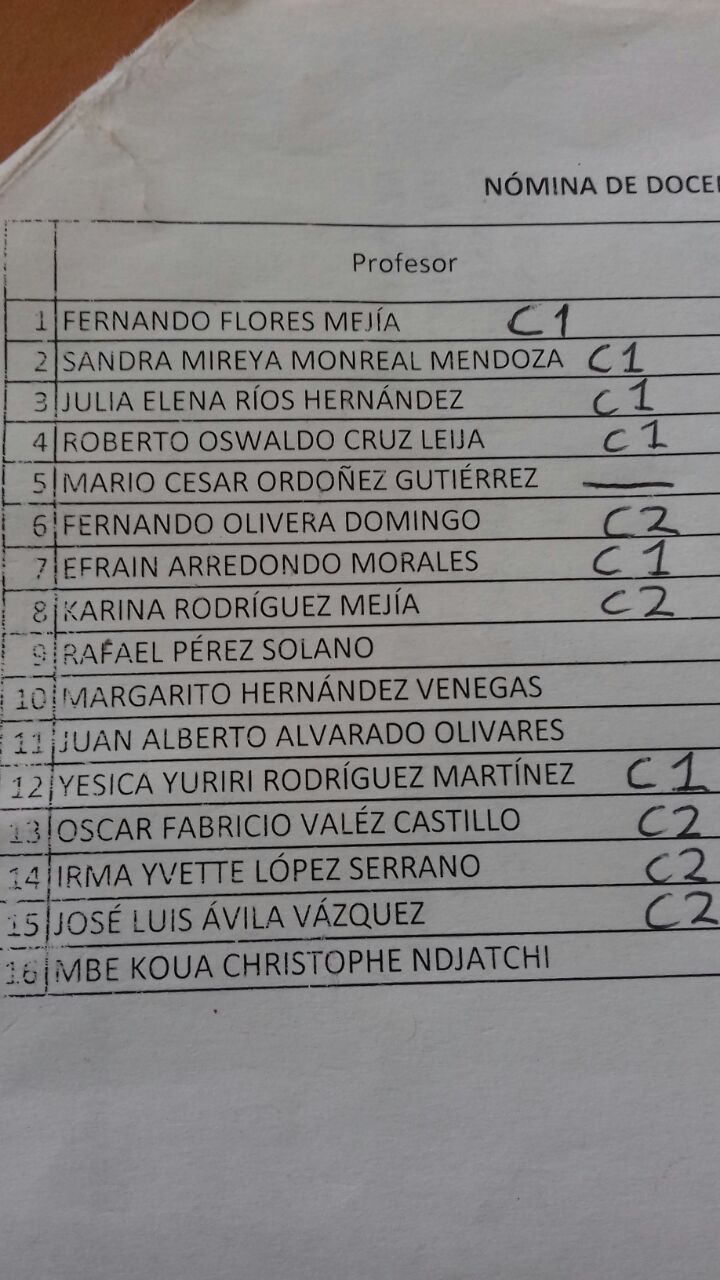 NÓMINA DE DOCE
Profesor
1 FERNANDO FLORES MEJÍA C1
2 SANDRA MIREYA MONREAL MENDOZA C1
3 JULIA ELENA RÍOS HERNÁNDEZ C1
4 ROBERTO OSWALDO CRUZ LEIJA C1
5 MARIO CESAR ORDOÑEZ GUTIÉRREZ —
6 FERNANDO OLIVERA DOMINGO C2
7 EFRAIN ARREDONDO MORALES C1
8 KARINA RODRÍGUEZ MEJÍA C2
9 RAFAEL PÉREZ SOLANO
10 MARGARITO HERNÁNDEZ VENEGAS
11 JUAN ALBERTO ALVARADO OLIVARES
12 YESICA YURIRI RODRÍGUEZ MARTÍNEZ C1
13 OSCAR FABRICIO VALÉZ CASTILLO C2
14 IRMA YVETTE LÓPEZ SERRANO C2
15 JOSÉ LUIS ÁVILA VÁZQUEZ C2
16 MBE KOUA CHRISTOPHE NDJATCHI